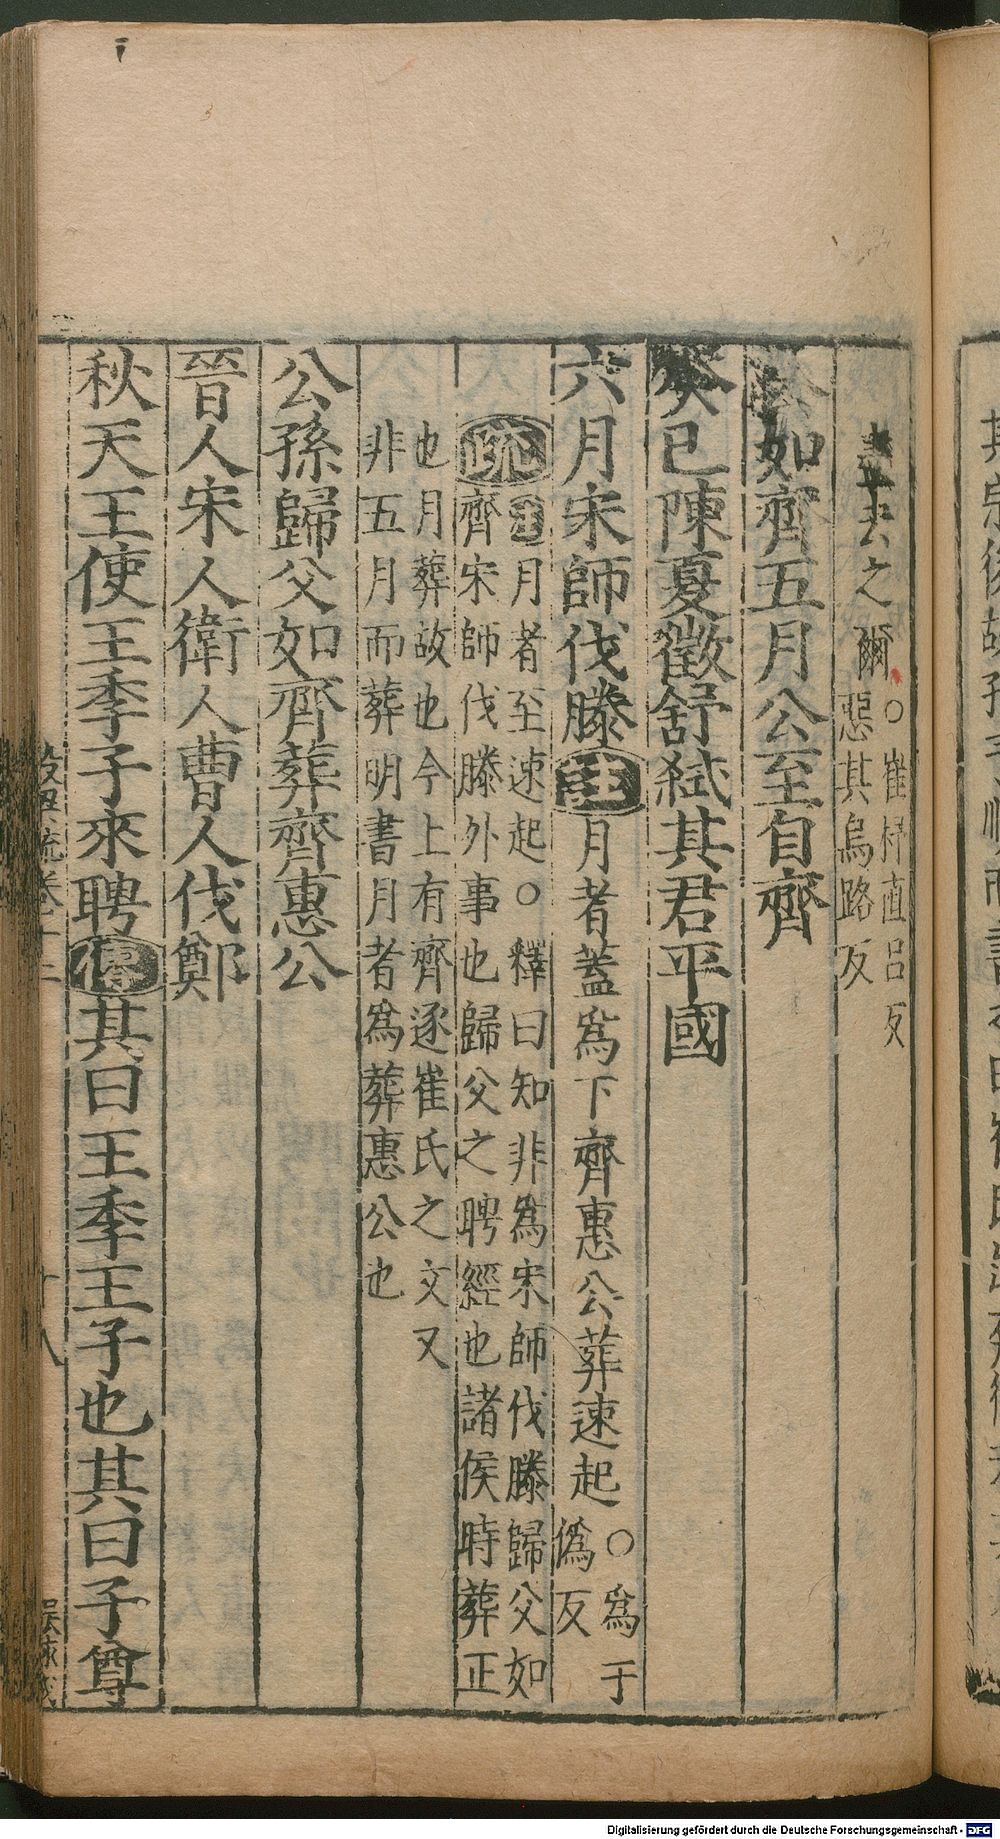 去之爾○崔杼直呂反
惡其烏路反
公如齊五月公至自齊
癸巳陳夏徵舒弒其君平國
六月宋師伐滕註月者蓋爲下齊惠公葬速起○爲于
僞反
疏註月者至速起○釋曰知非爲宋師伐滕歸父如
齊宋師伐滕外事也歸父之聘經也諸侯時葬正
也月葬故也今上有齊逐崔氏之文又
非五月而葬明書月者爲葬惠公也
公孫歸父如齊葬齊惠公
晉人宋人衛人曹人伐鄭
秋天王使王季子來聘傳其曰王季王子也其曰子尊
十八
Digitalisierung gefördert durch die Deutsche Forschungsgemeinschaft - DFG